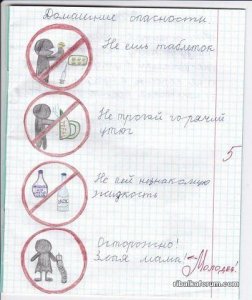 Домашние опасности
Не ешь таблеток
Не трогай горячий
утюг
Не пей незнакомую
жидкость
5
Осторожно!
Злая мама!
Молодец!
ribalkaforum.com